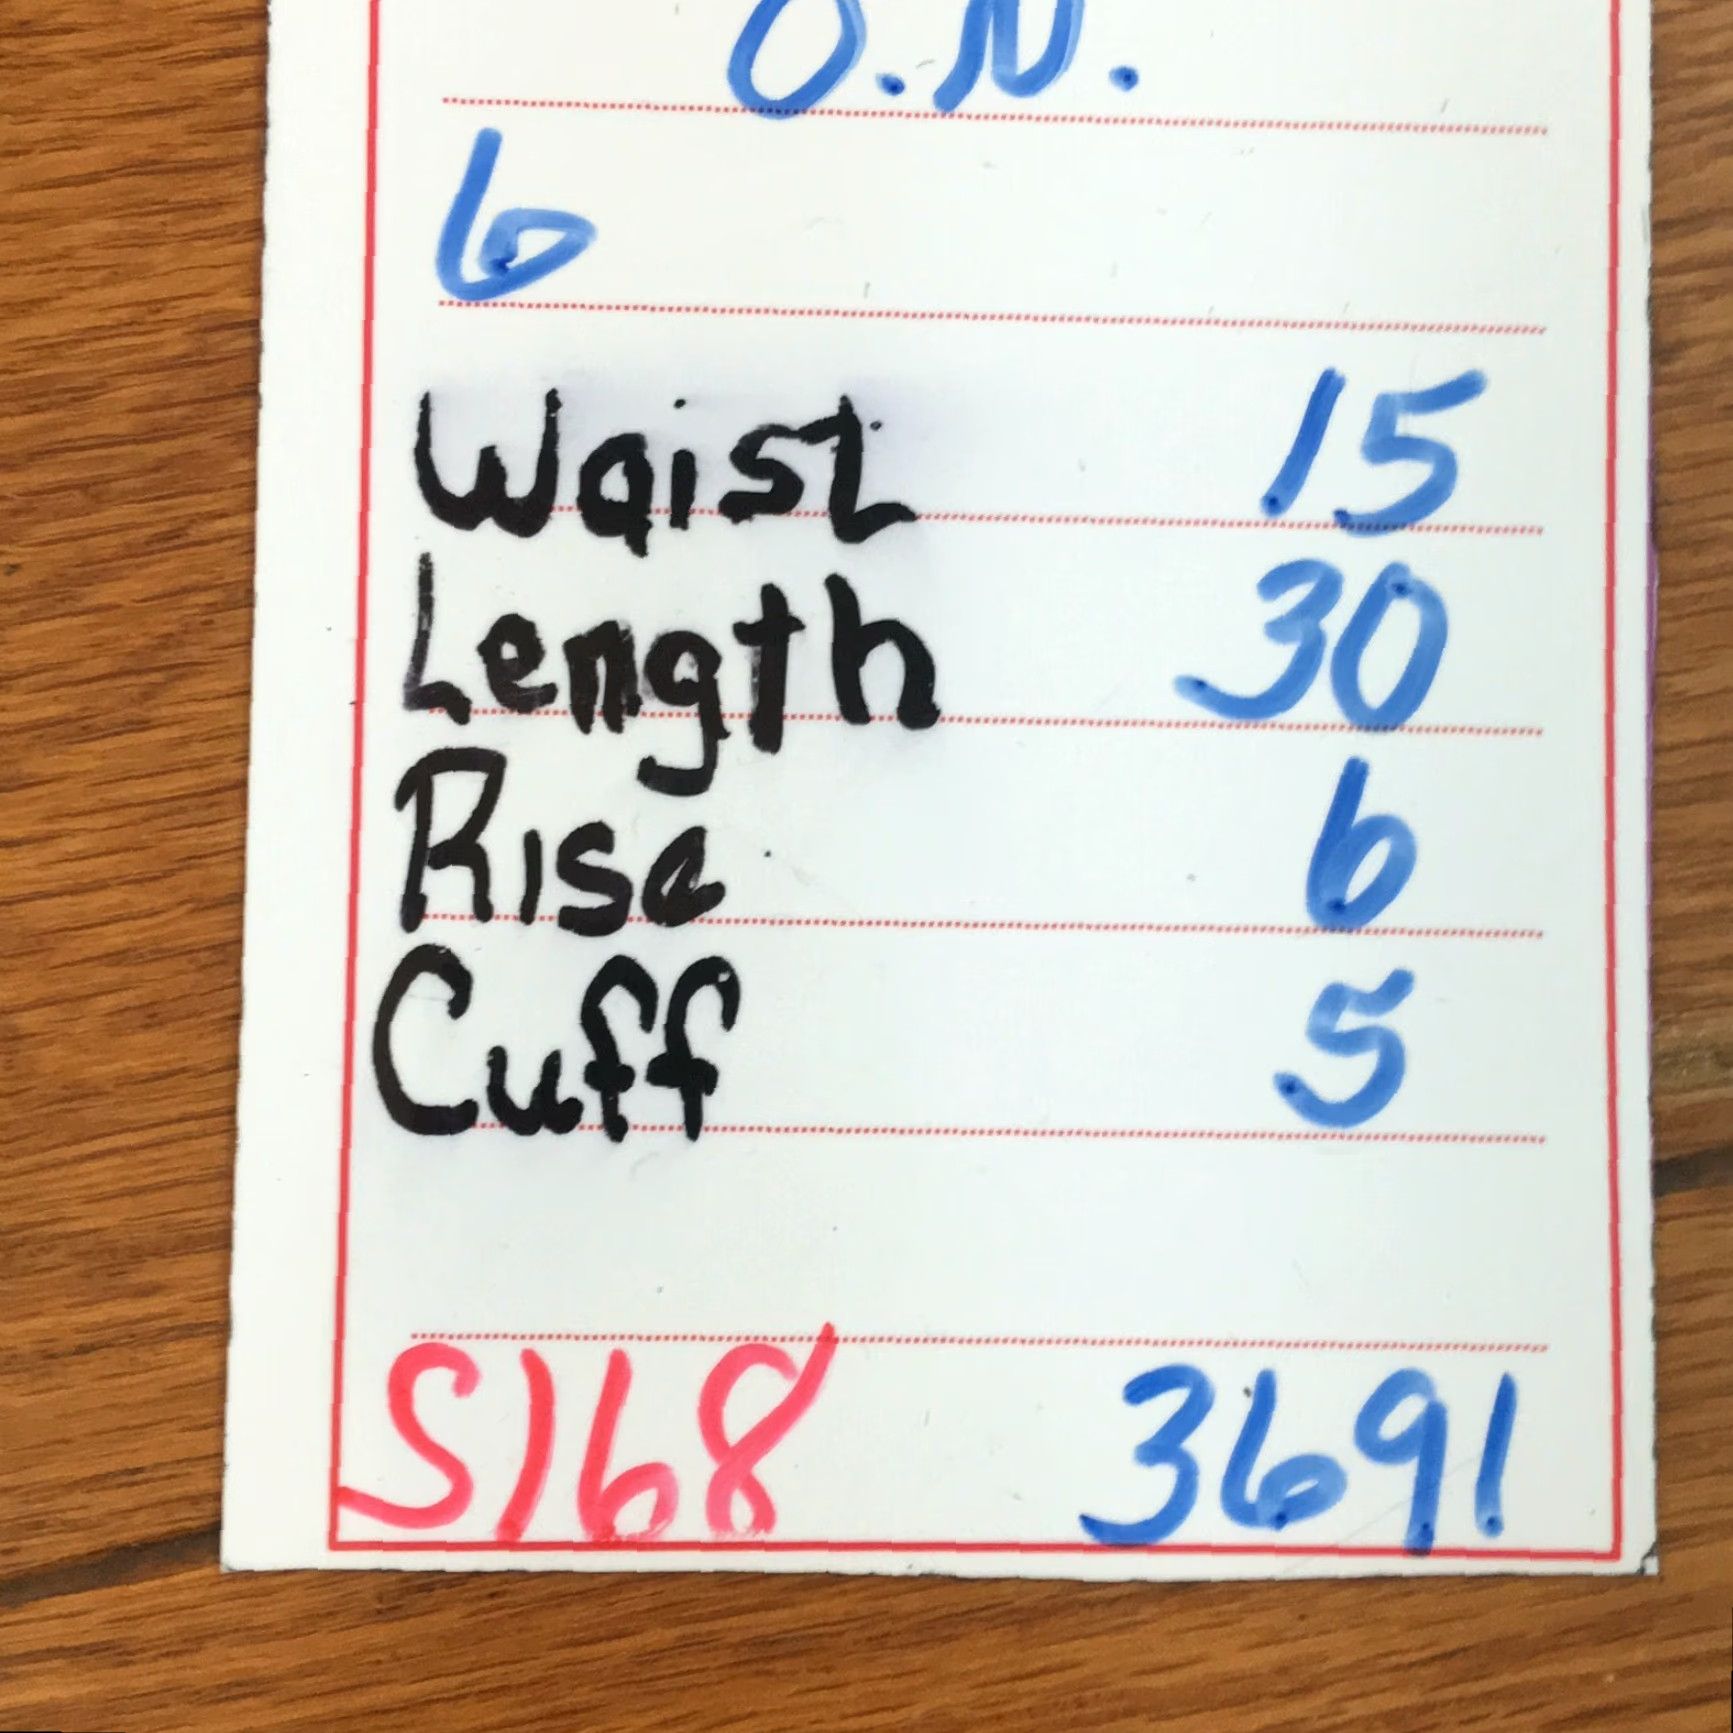 O.N.
6
Waist 15
Length 30
Rise 6
Cuff 5
S168 3691